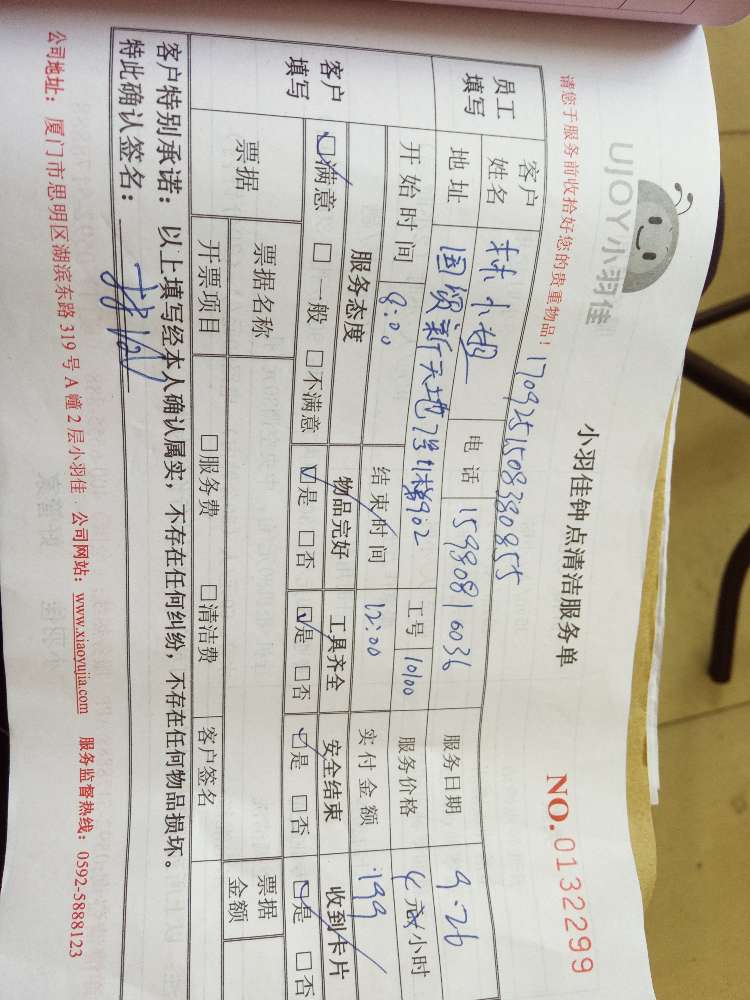 UJOY小羽佳
小羽佳钟点清洁服务单
NO.0132299
请您于服务前收拾好您的贵重物品!
1709251508380855
员工填写 客户姓名 林小姐 电话 15980816036 服务日期 9.26
地址 国贸新天地 902 工号 10100 服务价格 4元/小时
开始时间 8:00 结束时间 12:00 实付金额 199
客户填写 服务态度 物品完好 工具齐全 安全结束 收到卡片
☑满意 □一般 □不满意 ☑是 □否 ☑是 □否 ☑是 □否 ☑是 □否
票据 票据名称 票据金额
开票项目 □服务费 □清洁费 客户签名
客户特别承诺:以上填写经本人确认属实;不存在任何纠纷,不存在任何物品损坏。
特此确认签名:
公司地址:厦门市思明区湖滨东路319号A幢2层小羽佳 公司网站:www.xiaoyujia.com 服务监督热线:0592-5888123